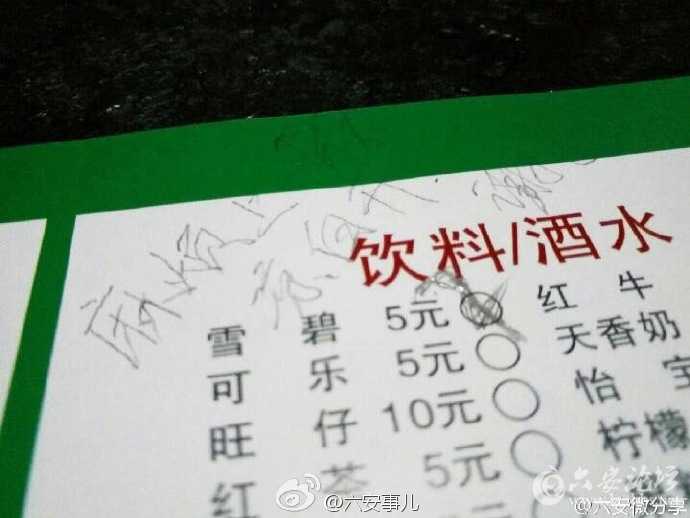 麻烦
饮料/酒水
雪 碧 5元 红 牛
可 乐 5元 天香奶
旺 仔 10元 怡 宝
红 茶 5元 柠檬
元
六安论坛
@六安事儿
@六安微分享